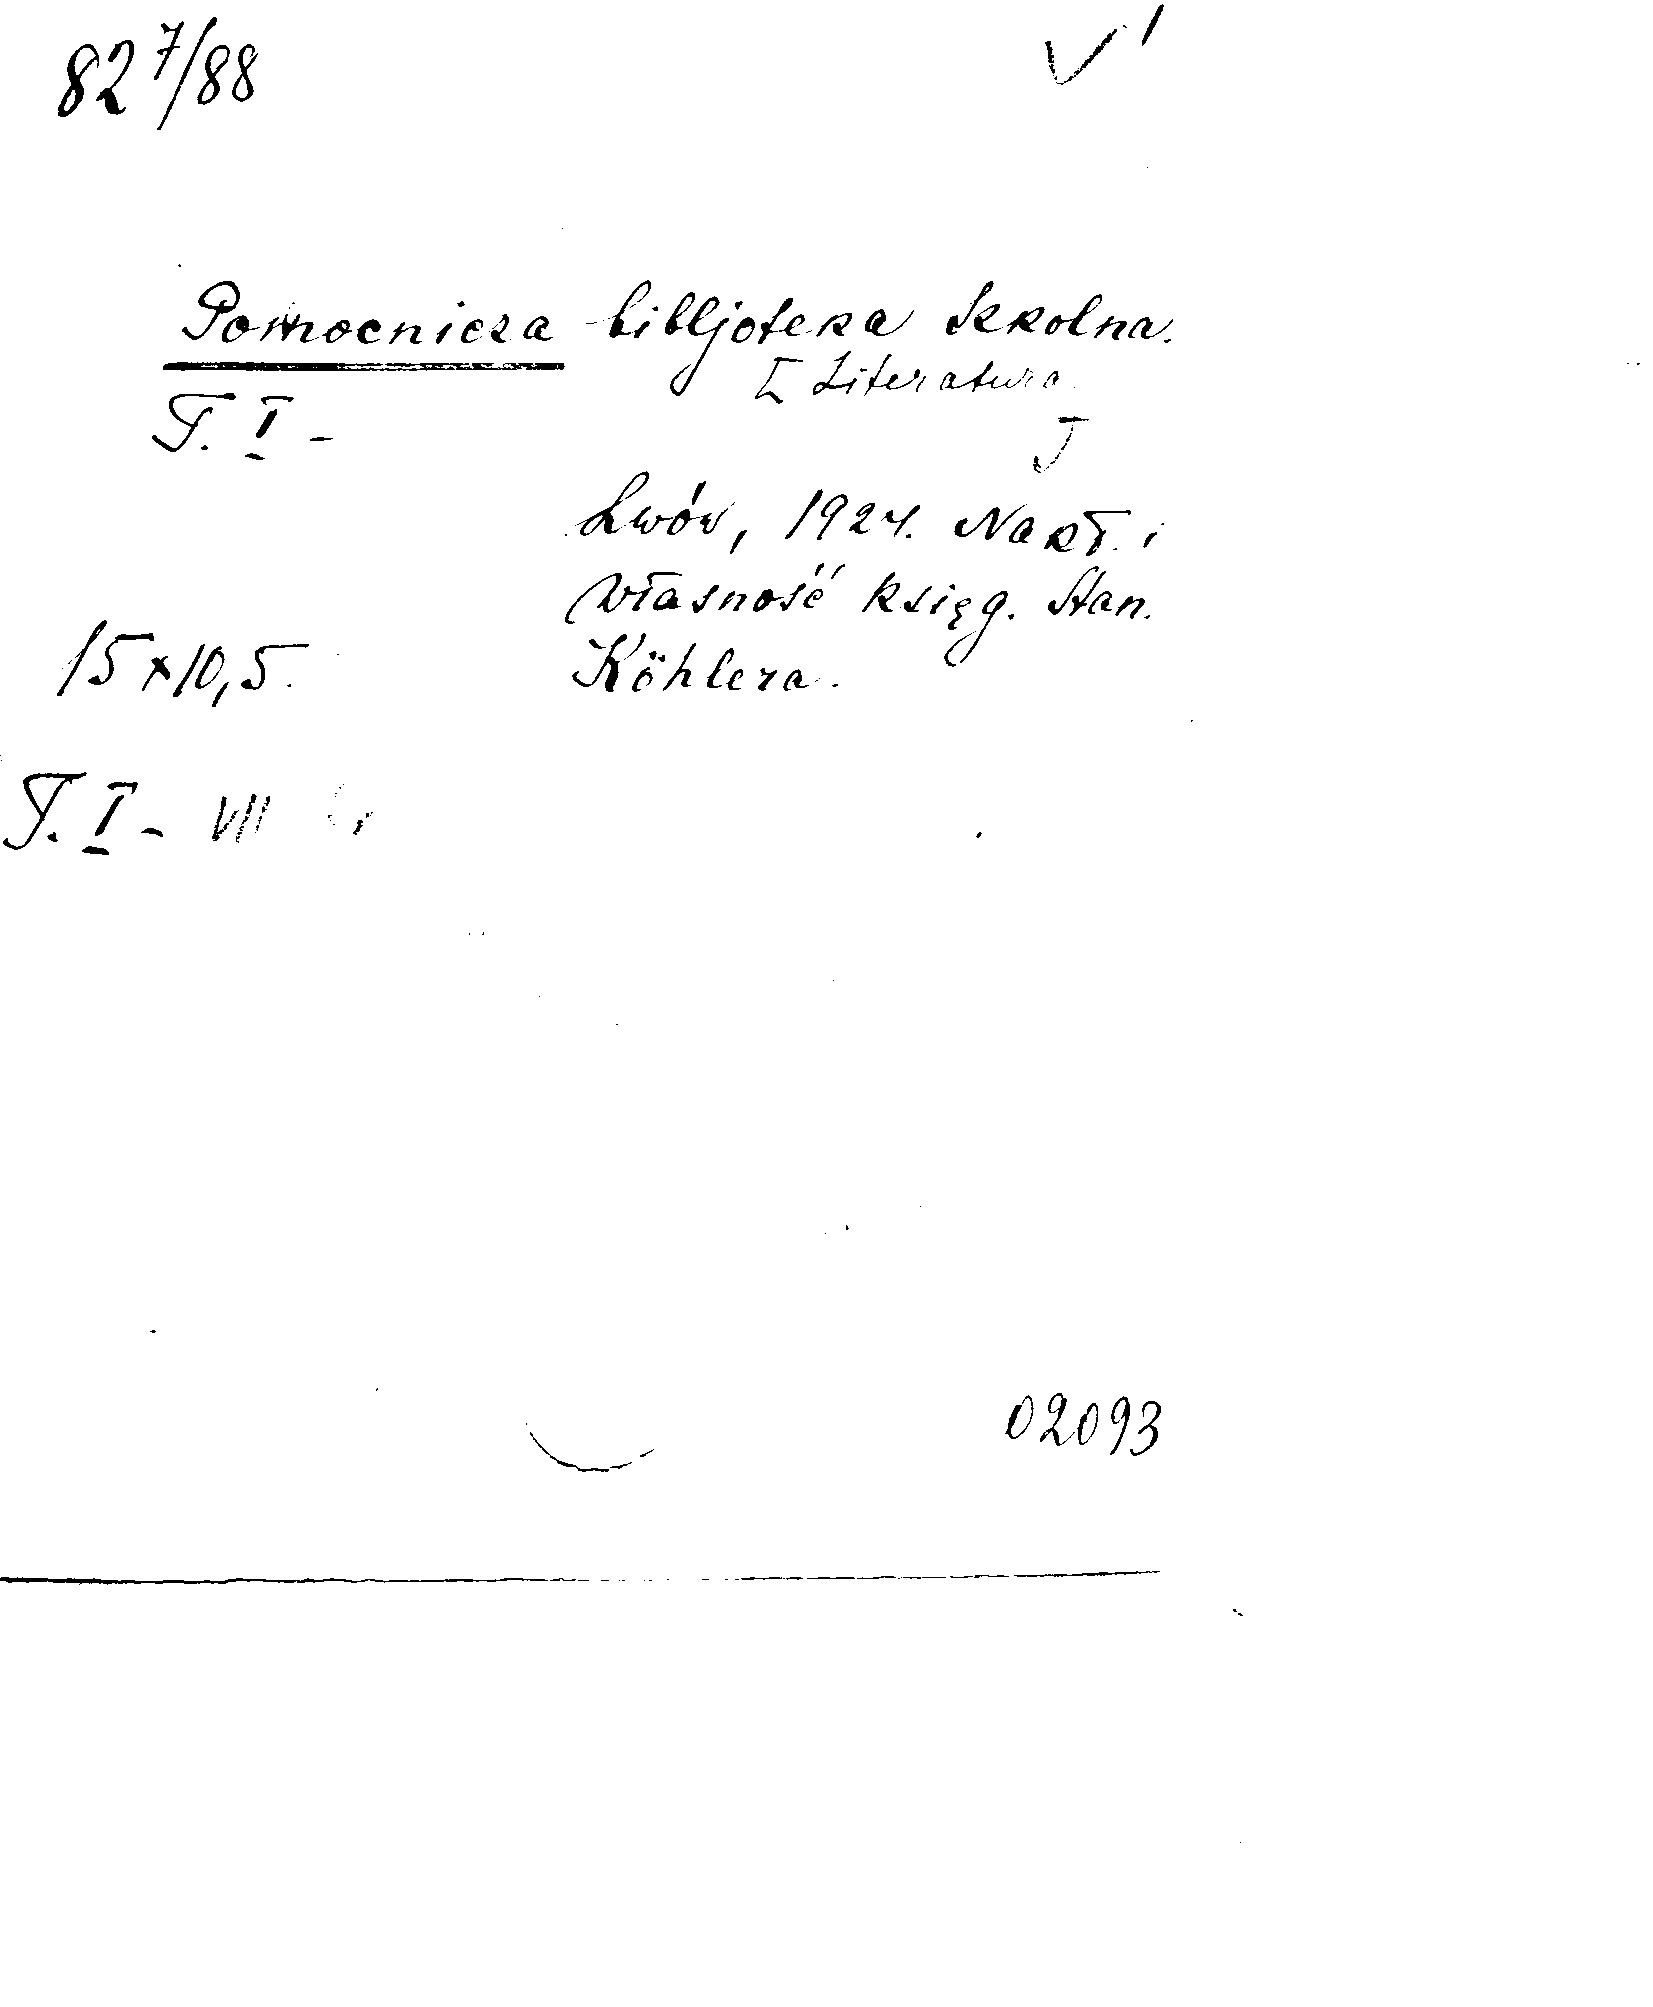 82 7/88
Pomocnicza bibljoteka szkolna.
[ Literatura
T. I -
Lwów, 1924. Nakł. i
własność księg. Stan.
15 x 10,5.
Köhlera.
T. I - VII
02093